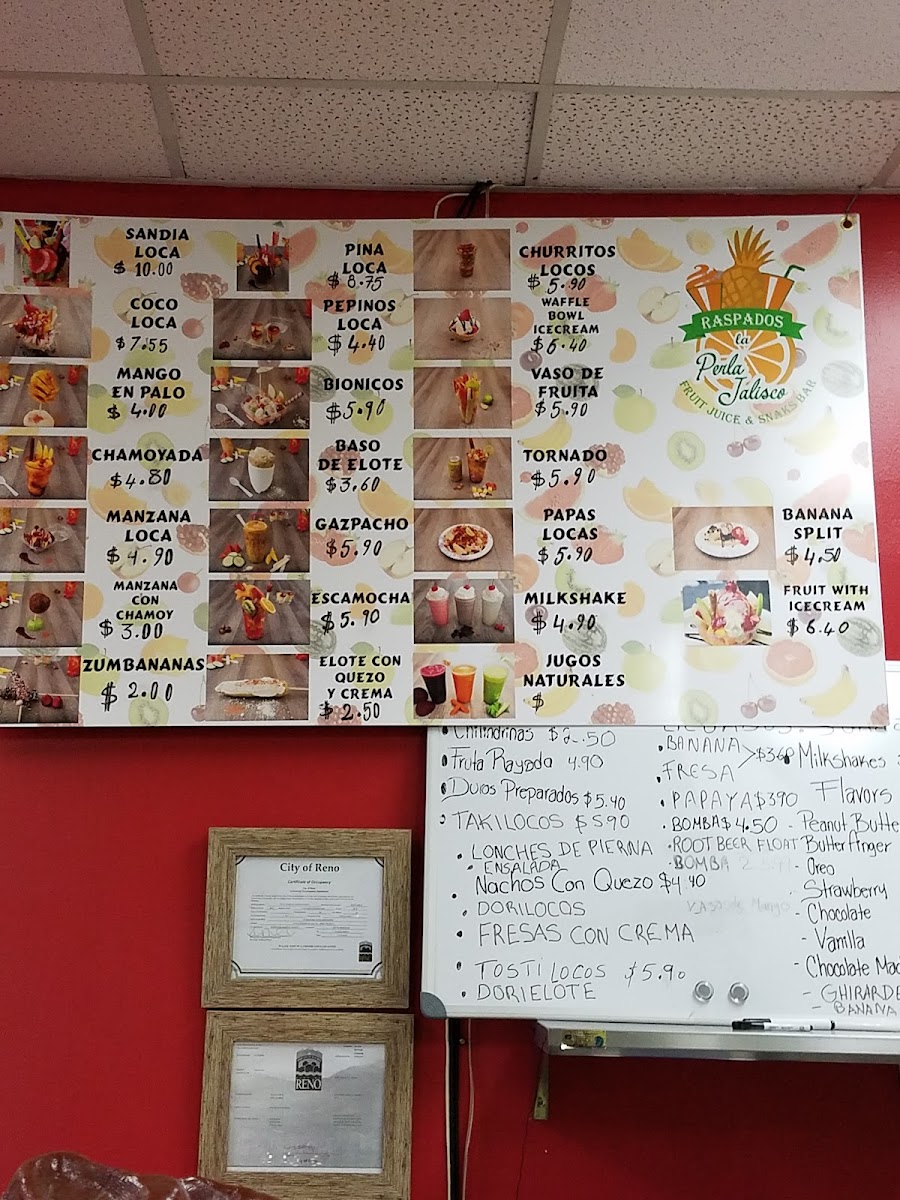 SANDIA
LOCA
$ 10.00
COCO
LOCA
$ 7.55
MANGO
EN PALO
$ 4.00
CHAMOYADA
$4.80
MANZANA
LOCA
$ 4.90
MANZANA
CON
CHAMOY
$ 3.00
ZUMBANANAS
$ 2.00
PINA
LOCA
$ 8.75
PEPINOS
LOCA
$ 4.40
BIONICOS
$5.90
BASO
DE ELOTE
$3.60
GAZPACHO
$5.90
ESCAMOCHA
$ 5.90
ELOTE CON
QUEZO
Y CREMA
$ 2.50
CHURRITOS
LOCOS
$ 5.90
WAFFLE
BOWL
ICECREAM
$6.40
VASO DE
FRUITA
$ 5.90
TORNADO
$5.90
PAPAS
LOCAS
$ 5.90
MILKSHAKE
$ 4.90
JUGOS
NATURALES
$
RASPADOS
la
Perla
Jalisco
FRUIT JUICE & SNAKS BAR
BANANA
SPLIT
$ 4.50
FRUIT WITH
ICECREAM
$ 6.40
Chilindrinas $2.50
Fruta Rayada 4.90
Duros Preparados $5.40
TAKILOCOS $5.90
LONCHES DE PIERNA
ENSALADA
Nachos Con Quezo $4.40
DORILOCOS
FRESAS CON CREMA
TOSTILOCOS $5.90
DORIELOTE
BANANA
FRESA
PAPAYA $390
BOMBA $4.50
ROOTBEER FLOAT
BOMBA
Vaso de Mango
Milkshakes
Flavors
- Peanut Butte
Butterfinger
- Oreo
- Strawberry
- Chocolate
- Vanilla
- Chocolate Mac
- GHIRARDE
- BANANA
City of Reno
Certificate of Occupancy
RENO